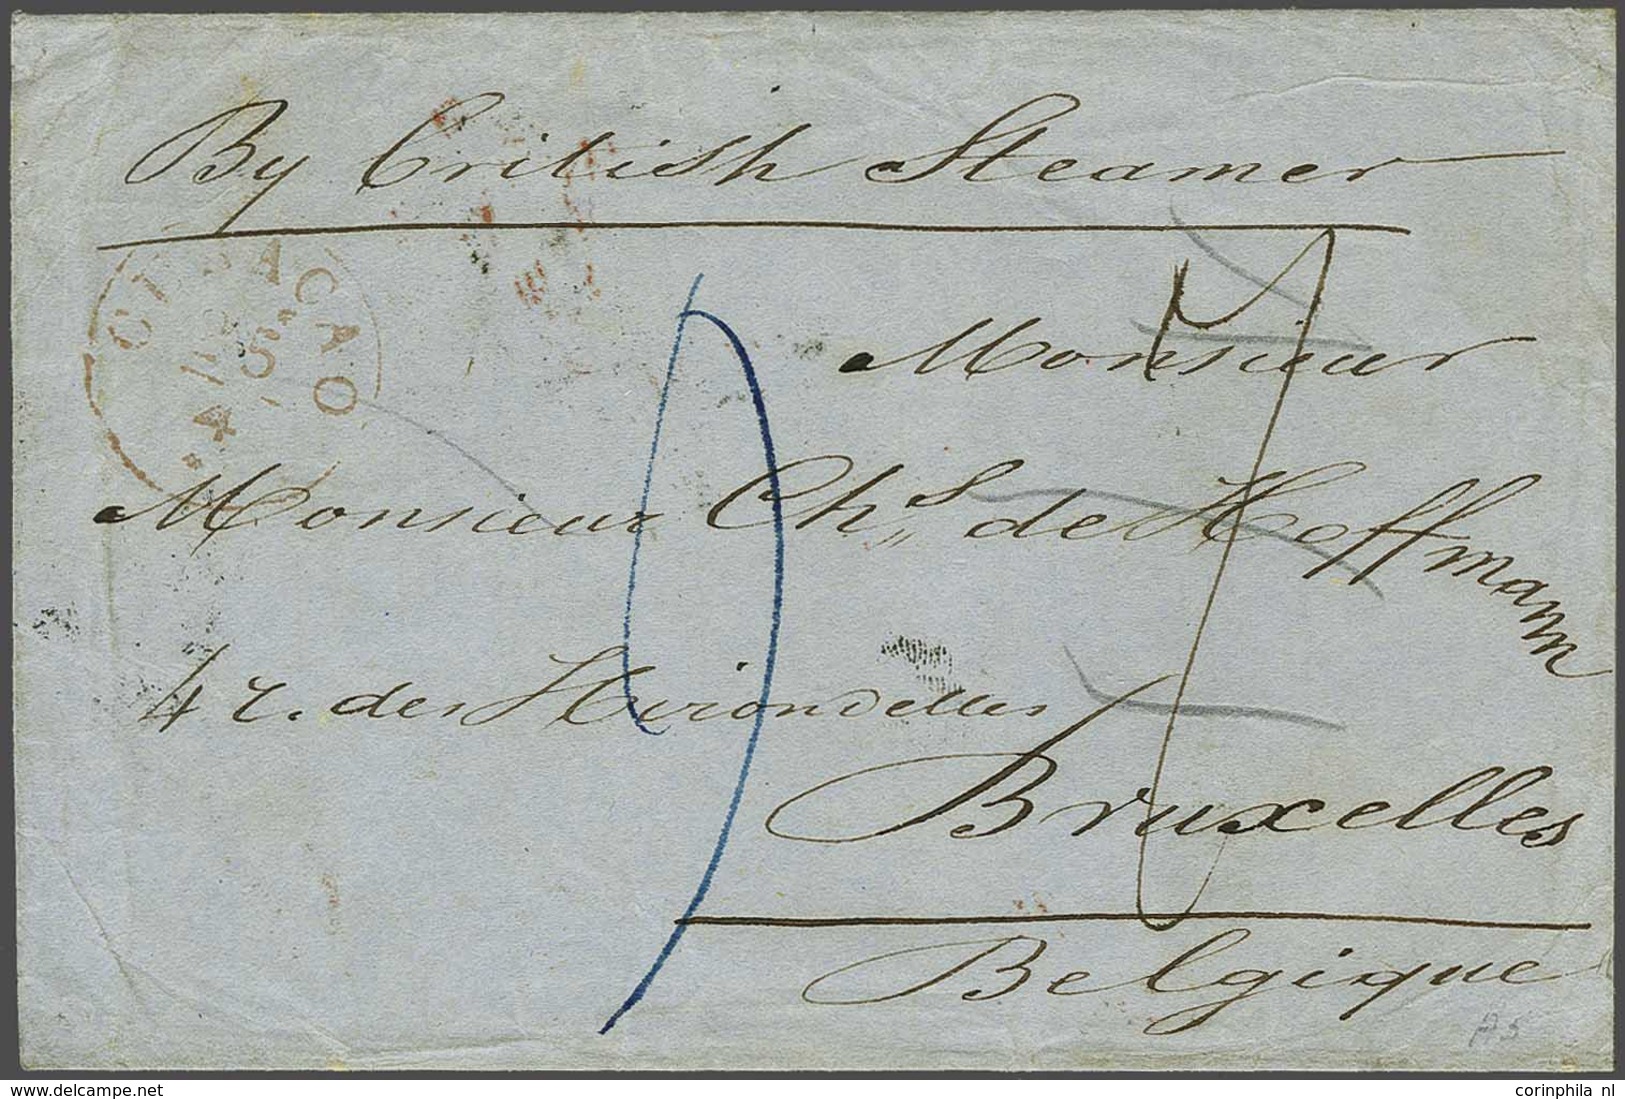 By British Steamer
CURAÇAO
Monsieur
Monsieur Chs de Hoffmann
4 r. des Hirondelles
Bruxelles
Belgique
corinphila nl